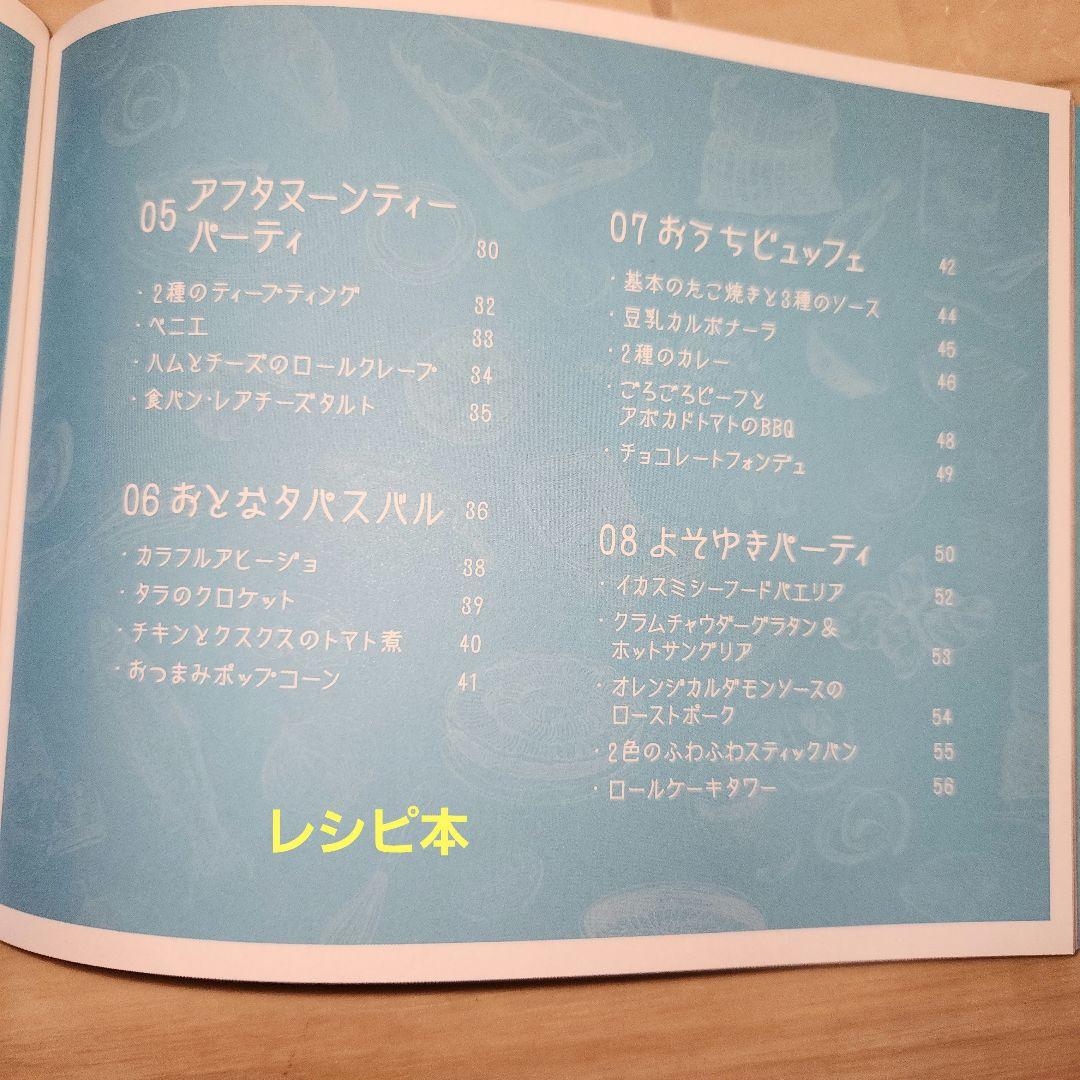 05 アフタヌーンティー
パーティ 30
・2種のティープティング 32
・ベニエ 33
・ハムとチーズのロールクレープ 34
・食パン・レアチーズタルト 35
06 おとなタパスバル 36
・カラフルアヒージョ 38
・タラのクロケット 39
・チキンとクスクスのトマト煮 40
・おつまみポップコーン 41
07 おうちビュッフェ 42
・基本のたこ焼きと3種のソース 44
・豆乳カルボナーラ 45
・2種のカレー 46
・ごろごろビーフと
アボカドトマトのBBQ 48
・チョコレートフォンデュ 49
08 よそゆきパーティ 50
・イカスミシーフードパエリア 52
・クラムチャウダーグラタン&
ホットサングリア 53
・オレンジカルダモンソースの
ローストポーク 54
・2色のふわふわスティックパン 55
・ロールケーキタワー 56
レシピ本